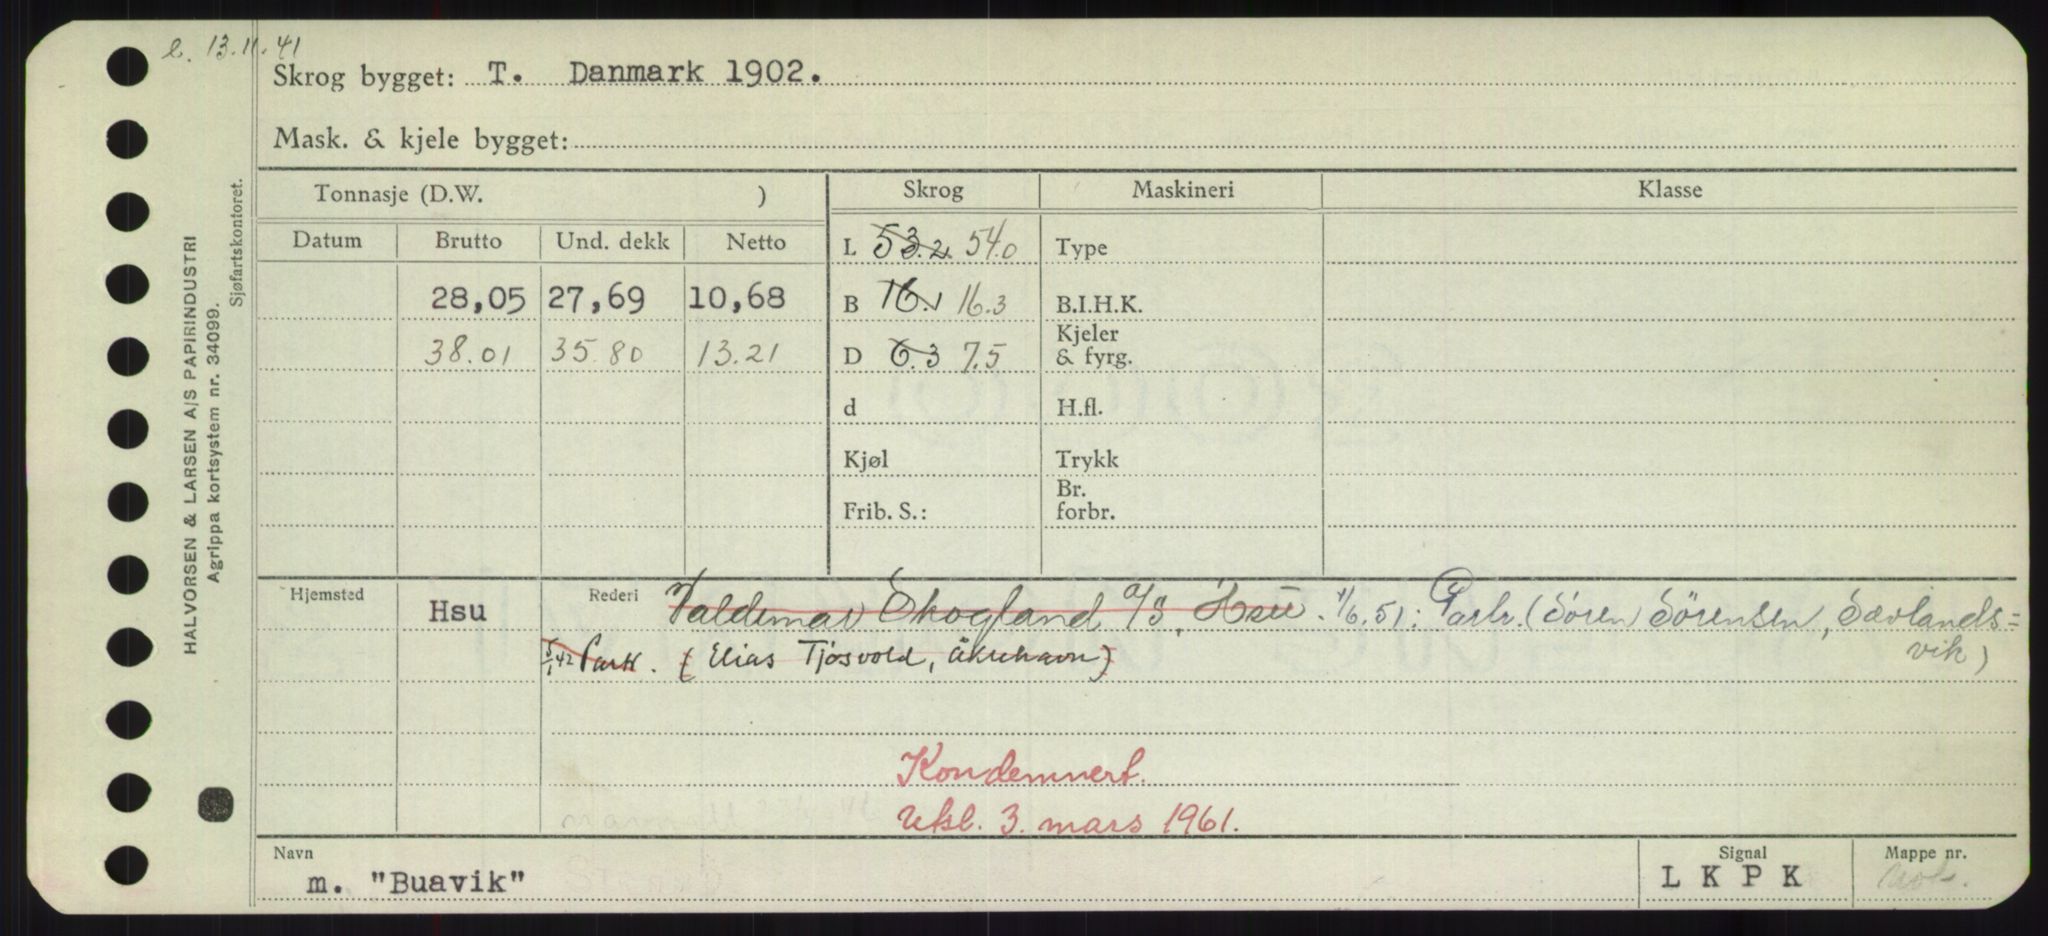 e. 13.11.41
Skrog bygget: T. Danmark 1902.
Mask. & kjele bygget:
Tonnasje (D.W. )
Skrog Maskineri Klasse
Datum Brutto Und. dekk Netto
L 53.2 54.0 Type
28,05 27,69 10,68
B 16.1 16.3 B.I.H.K.
38.01 35.80 13.21
D 6.3 7.5 Kjeler & fyrg.
d H.fl.
Kjøl Trykk
Frib. S.: Br. forbr.
Hjemsted Hsu Rederi Valdemar Skogland A/S, Hsu. 1/6.51: Partr. (Sören Sörensen, Sævlands=
vik)
5/1 42 Partr. (Elias Tjösvold, Åkrehavn)
Kondemnert.
Uksl. 3. mars 1961.
Navn m. "Buavik"
Signal L K P K
Mappe nr.
HALVORSEN & LARSEN A/S PAPIRINDUSTRI
Agrippa kortsystem nr. 34099.
Sjøfartskontoret.